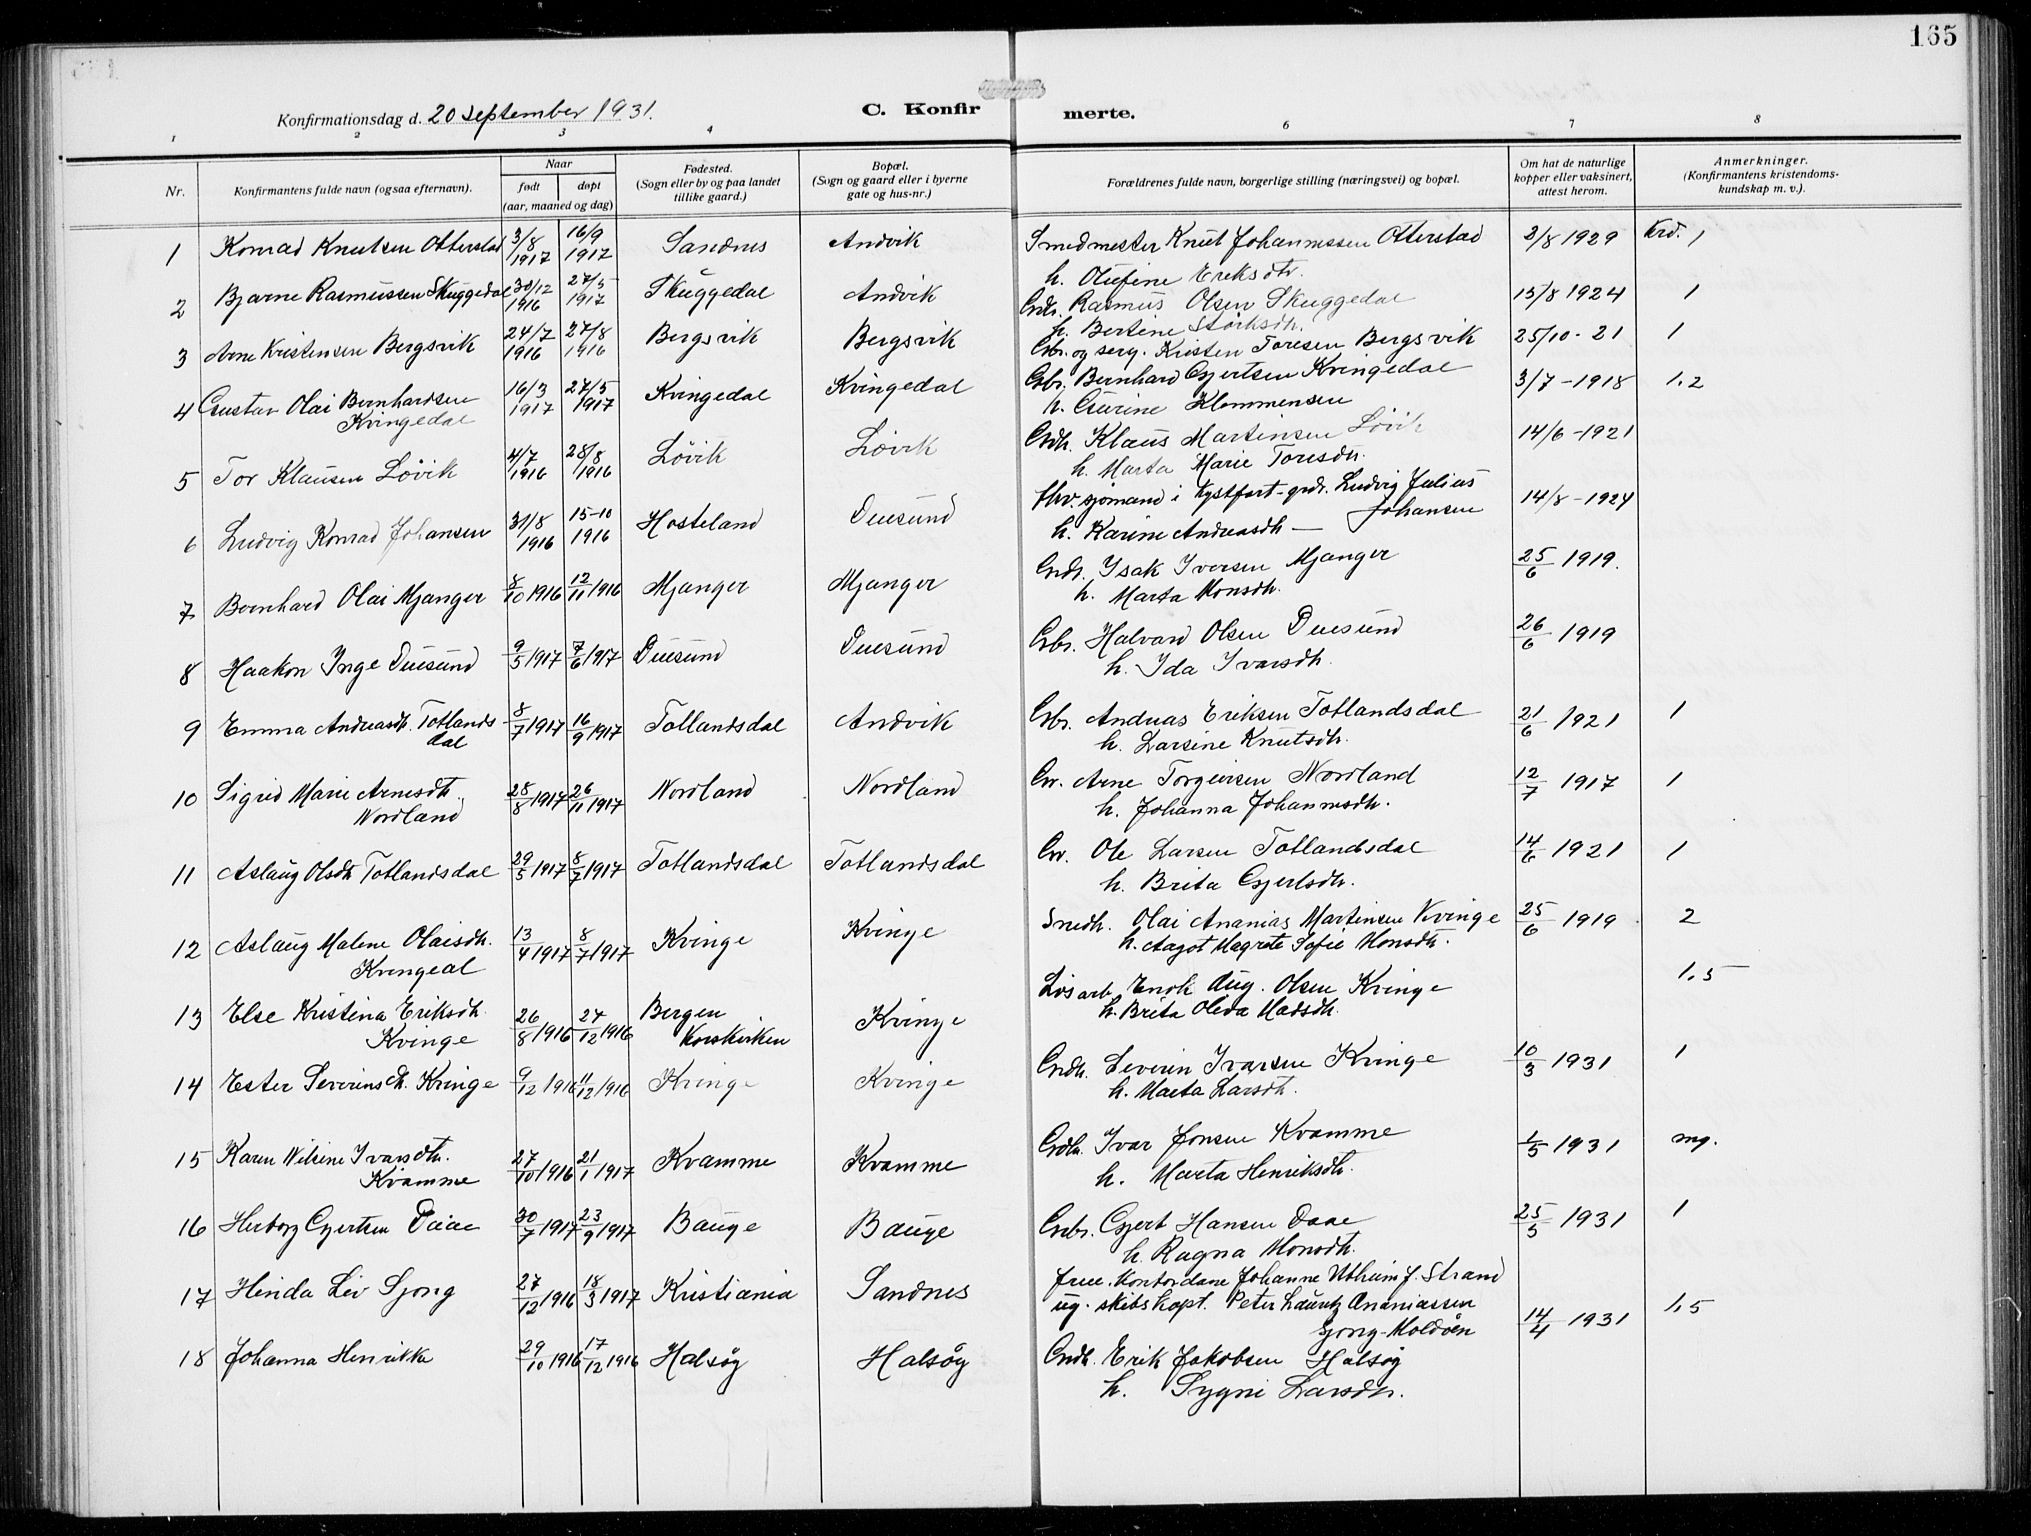 165
Konfirmationsdag d. 20 september 1931.
C. Konfir merte.
1 2 3 4 6 7 8
Nr.
Konfirmantens fulde navn (ogsaa efternavn).
Naar
født døpt
(aar, maaned og dag)
Fødested.
(Sogn eller by og paa landet
tillike gaard.)
Bopæl.
(Sogn og gaard eller i byerne
gate og hus-nr.)
Forældrenes fulde navn, borgerlige stilling (næringsvei) og bopæl.
Om hat de naturlige
kopper eller vaksinert,
attest herom.
Anmerkninger.
(Konfirmantens kristendoms-
kundskap m. v.).
1 Konrad Knutsen Otterstad 3/8 1917 16/9 1917 Sandnes Andvik Smedmester Knut Johannessen Otterstad 2/8 1929 Krd. 1
h. Olufine Eriksdtr.
2 Bjarne Rasmussen Skuggedal 30/12 1916 27/5 1917 Skuggedal Andvik Grdr. Rasmus Olsen Skuggedal 15/8 1924 1
h. Bertine Störksdh.
3 Arne Kristensen Bergsvik 24/7 1916 27/8 1916 Bergsvik Bergsvik Gbr. og serg. Kristen Toresen Bergsvik 25/10 - 21 1
4 Gustav Olai Bernhardsen 16/3 1917 27/5 1917 Kvingedal Kvingedal Gbr. Bernhard Gjertsen Kvingedal 3/7 - 1918 1.2
Kvingedal h. Gurine Klemmensen
5 Tor Klausen Lövik 4/7 1916 28/8 1916 Lövik Lövik Grdr. Klaus Martinsen Lövik 14/6 - 1921
h. Marta Marie Toresdtr.
6 Ludvig Konrad Johansen 31/8 1916 15-10 1916 Hosteland Duesund fhv. sjömand i kystfart - grdr. Ludvig Julius 14/8 - 1924
Johansen
h. Karine Andreasdh —
7 Bernhard Olai Mjanger 8/10 1916 12/11 1916 Mjanger Mjanger Grdr. Isak Iversen Mjanger 25/6 1919.
h. Marta Monsdh.
8 Haakon Inge Duesund 9/5 1917 7/6 1917 Duesund Duesund Gbr. Halvard Olsen Duesund 26/6 1919
h. Ida Ivarsdh.
9 Emma Andreasdh. Totlands 8/7 1917 16/9 1917 Totlandsdal Andvik Gbr. Andreas Eriksen Totlandsdal 21/6 1921 1
dal h. Larsine Knutsdh.
10 Sigrid Marie Arnesdh. 28/8 1917 26/11 1917 Nordland Nordland Gr. Arne Torgeirsen Nordland 12/7 1917 1
Nordland h. Johanna Johannesdh.
11 Aslaug Olsdh Totlandsdal 29/5 1917 8/7 1917 Totlandsdal Totlandsdal Gr. Ole Larsen Totlandsdal 14/6 1921 1
h. Brita Gjertsdh.
12 Aslaug Malene Olaisdh. 13/4 1917 8/7 1917 Kvinge Kvinge Snedh. Olai Ananias Martinsen Kvinge 25/6 1919 2
Kvingeal h. Aagot Magrete Sofie Monsdh.
13 Else Kristina Eriksdh. 26/8 1916 27/12 1916 Bergen Kvinge Lösarb. Enok Aug. Olsen Kvinge 1.5
Kvinge Korskirken h. Brita Oleva Madsdh.
14 Ester Severinsdh. Kvinge 9/12 1916 11/12 1916 Kvinge Kvinge Grdh. Severin Ivarsen Kvinge 10/3 1931 1
h. Marta Larsdh.
15 Karen Nilsine Ivarsdtr. 27/10 1916 21/1 1917 Kvamme Kvamme Grdh. Ivar Jonsen Kvamme 1/5 1931 mg.
Kvamme h. Marta Henriksdh.
16 Herborg Gjertsen Daae 30/7 1917 23/9 1917 Bauge Bauge Gbr. Gjert Hansen Daae 25/5 1931 1
h. Ragna Monsdh.
17 Hinda Liv Sjong 27/12 1916 18/3 1917 Kristiania Sandnes frue. Kontordame Johanne Utheim f. Strand
ug. skibskapt. Peter Lauritz Ananiassen 14/4 1931 1,5
Sjong-Moldöen
18 Johanna Henrikke 29/10 1916 17/12 1916 Halsöy Halsöy Grdh. Erik Jakobsen Halsöy
h. Sygni Larsdtr.